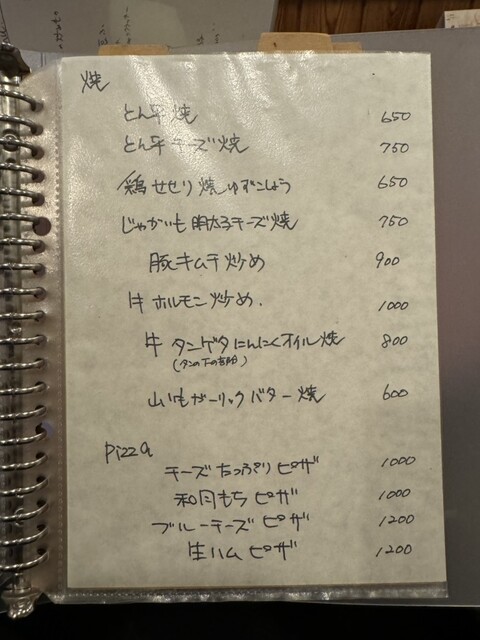 焼
とん平焼 650
とん平チーズ焼 750
鶏せせり焼ゆずこしょう 650
じゃがいも明太子チーズ焼 750
豚キムチ炒め 900
牛ホルモン炒め. 1000
牛タンゲタにんにくオイル焼 800
(タンの下の部分)
山いもガーリックバター焼 600
Pizza
チーズたっぷりピザ 1000
和風もちピザ 1000
ブルーチーズピザ 1200
生ハムピザ 1200